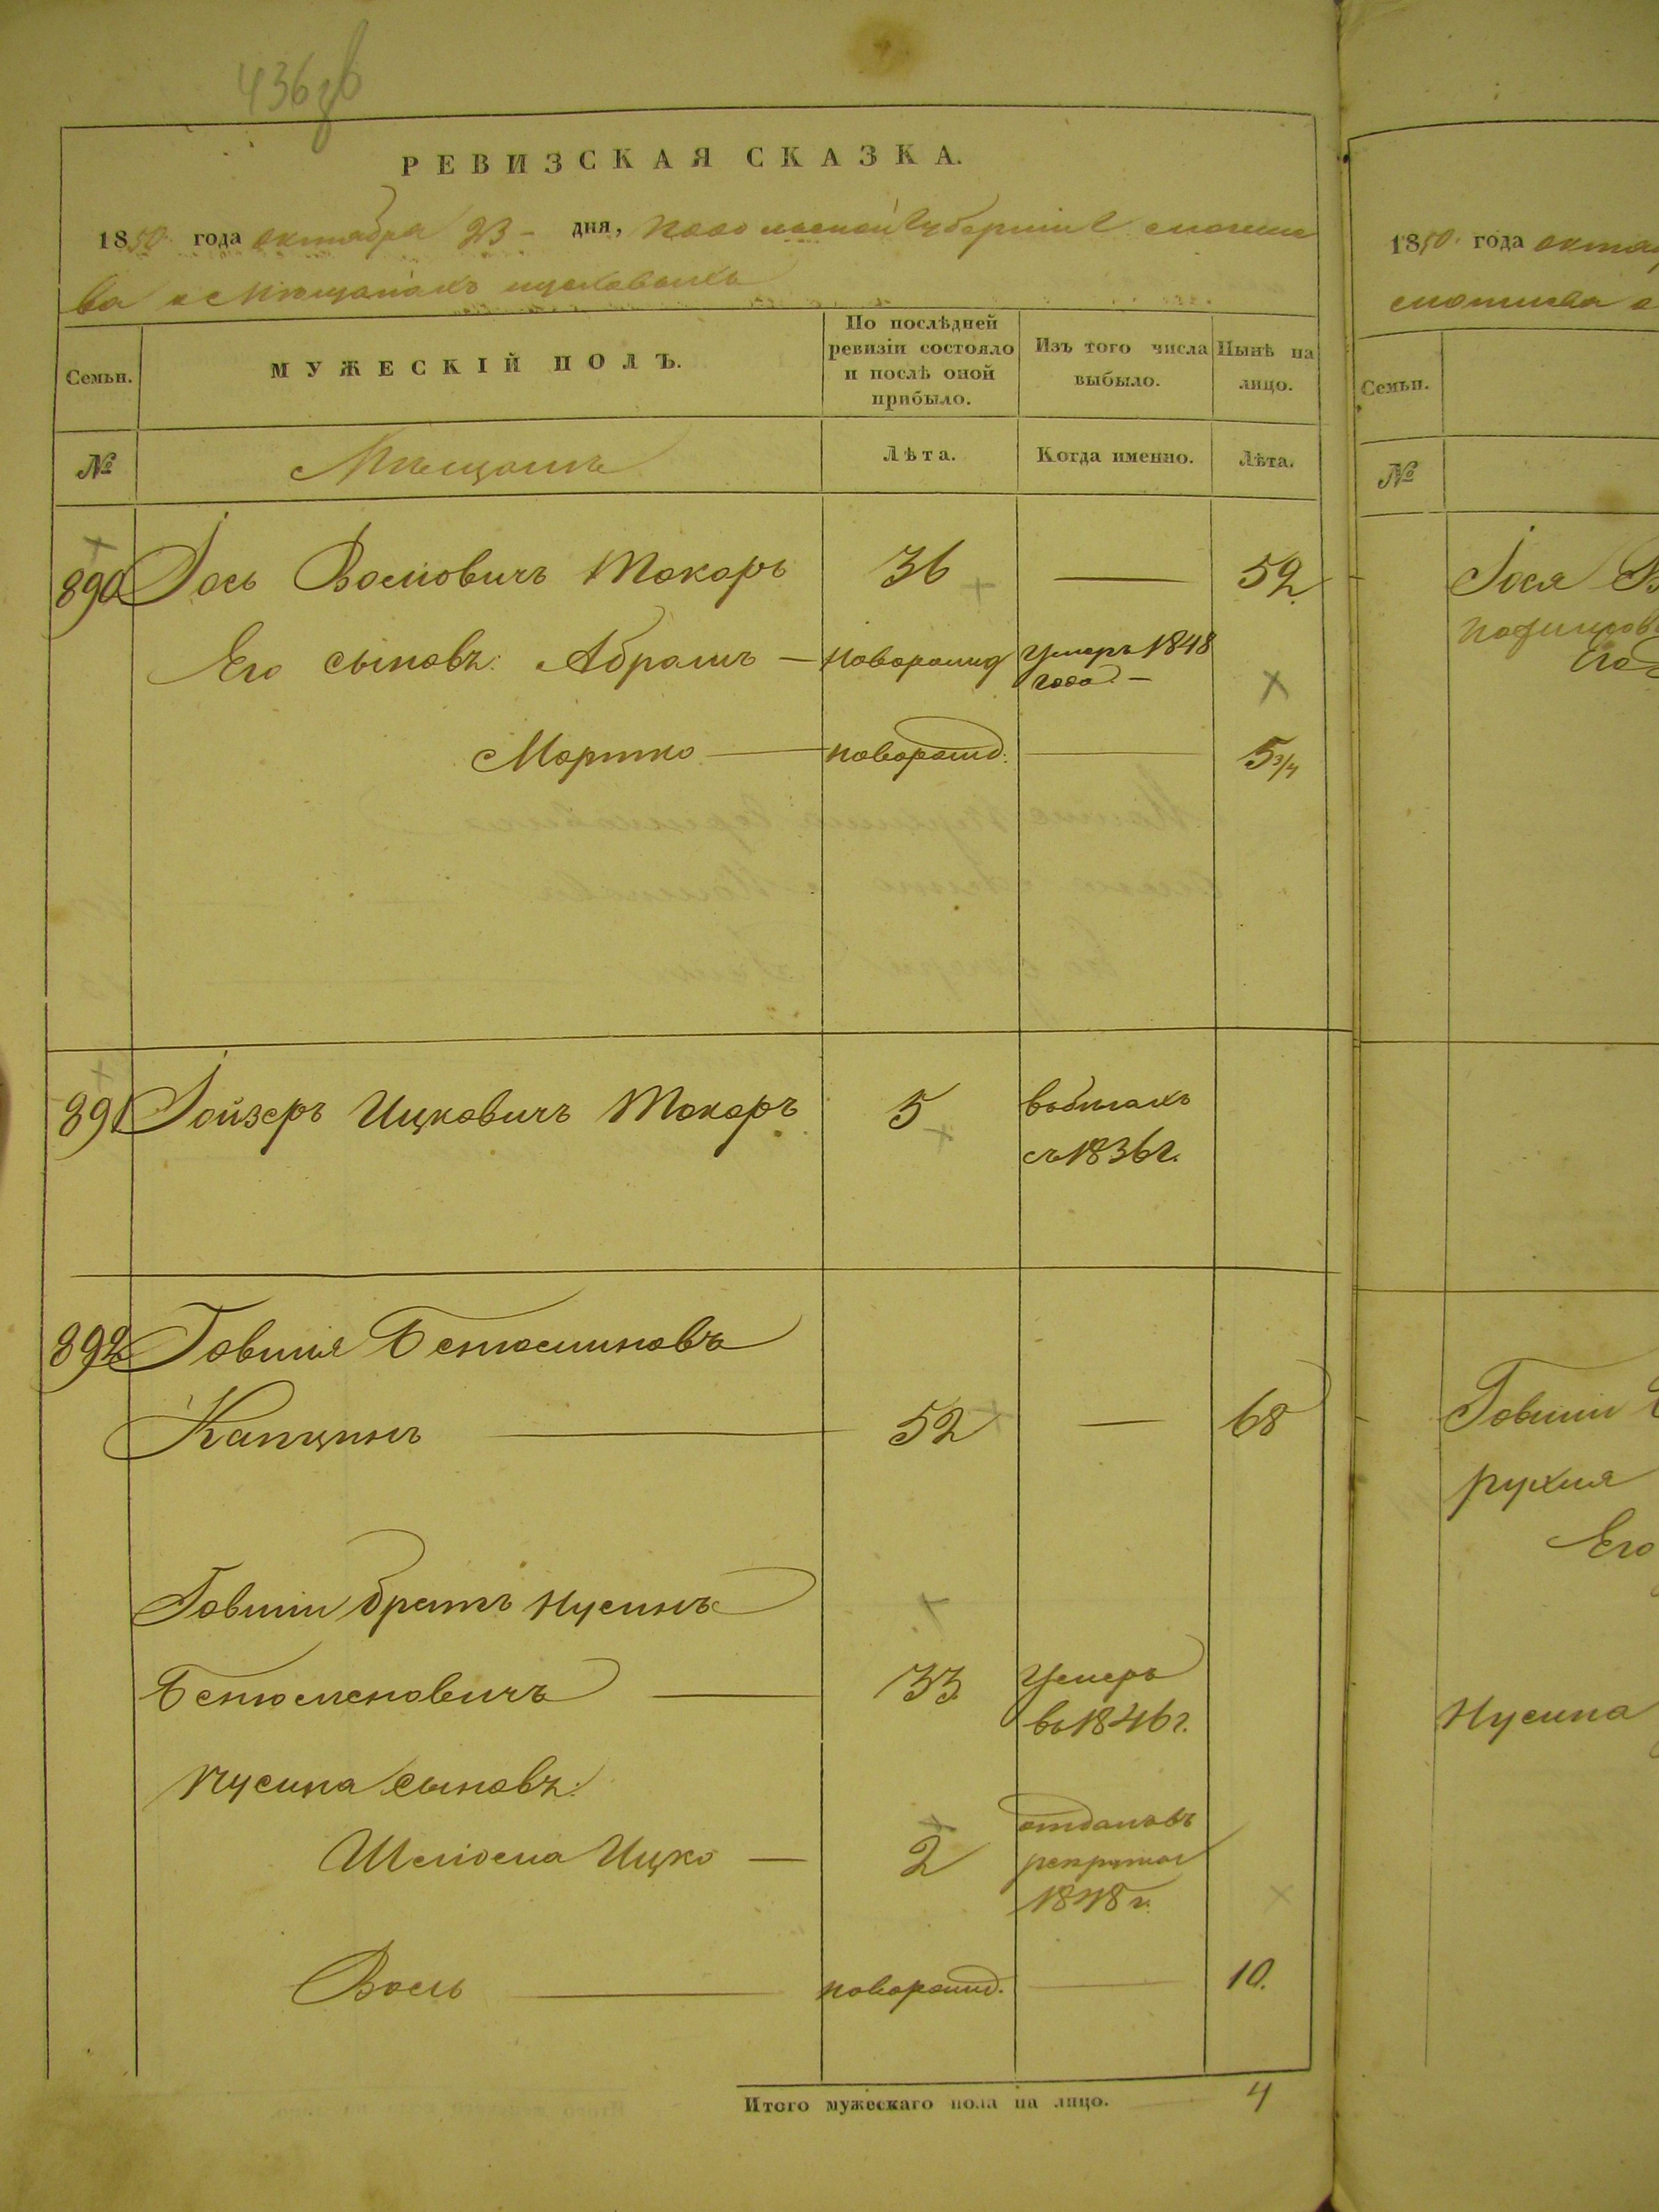 436 об
РЕВИЗСКАЯ СКАЗКА.
1850 года октября 23 - дня, Подольской Губерніи
о Мещанахъ
Семьи.
МУЖЕСКІЙ ПОЛЪ.
По послѣдней ревизіи состояло и послѣ оной прибыло.
Изъ того числа выбыло.
Нынѣ на лицо.
№
Мещане
Лѣта.
Когда именно.
Лѣта.
890 Іось Волковичъ Токарь 36 — 52
Его сыновъ: Абрамъ — новорожд умеръ 1848 года —
Мортко — новорожд. — 5 3/4
891 Лойзеръ Ицковичъ Токарь 5 въ бѣгахъ съ 1836 г.
892 Говшія Бенюминовъ
Капцанъ — 52 — 68
Говшіи братъ Нусинъ
Бенюменовичъ — 33 умеръ въ 1846 г.
Нусина сыновъ:
Шліома Ицко — 2 отданъ въ рекруты 1848 г.
Волъ — новорожд. — 10.
Итого мужескаго пола на лицо. 4
1850 года
Семьи.
№
Іося
Его
Говшіи
рухля
Его
Нусина